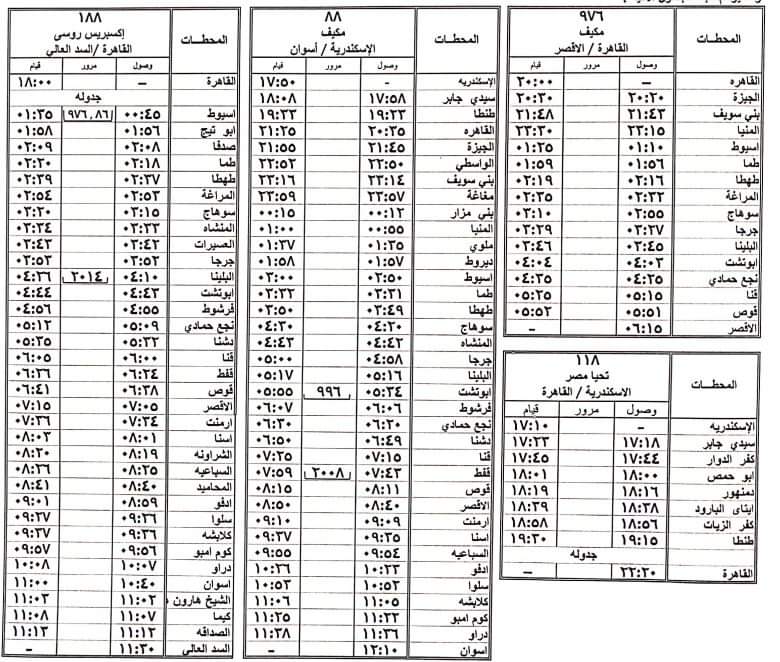 ٩٧٦
مكيف
القاهرة / الاقصر
المحطــات
وصول مرور قيام
القاهره – ٢٠:٠٠
الجيزة ٢٠:٢٠ ٢٠:٣٠
بني سويف ٢١:٤٣ ٢١:٤٨
المنيا ٢٣:١٥ ٢٣:٢٠
اسيوط ٠١:١٠ ٠١:٢٥
طما ٠١:٥٦ ٠١:٥٩
طهطا ٠٢:١٦ ٠٢:١٩
المراغة ٠٢:٣٢ ٠٢:٣٥
سوهاج ٠٢:٥٥ ٠٣:١٠
جرجا ٠٣:٢٧ ٠٣:٢٩
البلينا ٠٣:٤٥ ٠٣:٤٦
ابوتشت ٠٤:٠٣ ٠٤:٠٤
نجع حمادي ٠٤:٢٥ ٠٤:٣٥
قنا ٠٥:١٥ ٠٥:٢٥
قوص ٠٥:٥١ ٠٥:٥٢
الاقصر ٠٦:١٥ –
١١٨
تحيا مصر
الاسكندرية / القاهرة
المحطــات
وصول مرور قيام
الإسكندريه – ١٧:١٠
سيدي جابر ١٧:١٨ ١٧:٢٣
كفر الدوار ١٧:٤٤ ١٧:٤٥
ابو حمص ١٨:٠٠ ١٨:٠١
دمنهور ١٨:١٦ ١٨:١٩
ايتاى البارود ١٨:٣٨ ١٨:٣٩
كفر الزيات ١٨:٥٦ ١٨:٥٨
طنطا ١٩:١٥ ١٩:٢٠
جدوله
القاهرة ٢٢:٢٠ –
٨٨
مكيف
الإسكندرية / أسوان
المحطــات
وصول مرور قيام
الإسكندريه - ١٧:٥٠
سيدي جابر ١٧:٥٨ ١٨:٠٨
طنطا ١٩:٢٣ ١٩:٣٣
القاهره ٢٠:٣٥ ٢١:٢٥
الجيزة ٢١:٤٥ ٢١:٥٥
الواسطي ٢٢:٥٠ ٢٢:٥٢
بني سويف ٢٣:١٤ ٢٣:١٦
مغاغة ٢٣:٥٧ ٢٣:٥٩
بني مزار ٠٠:١٢ ٠٠:١٥
المنيا ٠٠:٥٥ ٠١:٠٠
ملوي ٠١:٣٥ ٠١:٣٧
ديروط ٠١:٥٧ ٠١:٥٨
اسيوط ٠٢:٥٠ ٠٣:٠٠
طما ٠٣:٣١ ٠٣:٣٢
طهطا ٠٣:٤٩ ٠٣:٥٠
سوهاج ٠٤:٢٠ ٠٤:٣٠
المنشاه ٠٤:٤٢ ٠٤:٤٣
جرجا ٠٤:٥٨ ٠٥:٠٠
البلينا ٠٥:١٦ ٠٥:١٧
ابوتشت ٠٥:٣٤ ٩٩٦ ٠٥:٥٥
فرشوط ٠٦:٠٦ ٠٦:٠٧
نجع حمادي ٠٦:٢٠ ٠٦:٣٠
دشنا ٠٦:٤٩ ٠٦:٥٠
قنا ٠٧:١٥ ٠٧:٢٥
قفط ٠٧:٤٣ ٢٠٠٨ ٠٧:٥٩
قوص ٠٨:١١ ٠٨:١٥
الأقصر ٠٨:٤٠ ٠٨:٥٠
ارمنت ٠٩:٠٩ ٠٩:١٠
اسنا ٠٩:٣٥ ٠٩:٣٧
السباعيه ٠٩:٥٤ ٠٩:٥٥
ادفو ١٠:٢٣ ١٠:٢٦
سلوا ١٠:٥٢ ١٠:٥٣
كلابشه ١١:٠٥ ١١:٠٦
كوم امبو ١١:٢٣ ١١:٢٥
دراو ١١:٣٦ ١١:٣٨
اسوان ١٢:١٠ –
١٨٨
إكسبريس روسى
القاهرة /السد العالي
المحطــات
وصول مرور قيام
القاهرة – ١٨:٠٠
جدوله
اسيوط ٠٠:٤٥ ٩٧٦,٨٦ ٠١:٣٥
ابو تيج ٠١:٥٦ ٠١:٥٨
صدفا ٠٢:٠٨ ٠٢:٠٩
طما ٠٢:١٨ ٠٢:٢٠
طهطا ٠٢:٣٧ ٠٢:٣٩
المراغة ٠٢:٥٣ ٠٢:٥٤
سوهاج ٠٣:١٥ ٠٣:٢٠
المنشاه ٠٣:٣٣ ٠٣:٣٤
العصيرات ٠٣:٤٢ ٠٣:٤٣
جرجا ٠٣:٥٢ ٠٣:٥٣
البلينا ٠٤:١٠ ٢٠١٤ ٠٤:٢٦
ابوتشت ٠٤:٤٣ ٠٤:٤٤
فرشوط ٠٤:٥٥ ٠٤:٥٦
نجع حمادي ٠٥:٠٩ ٠٥:١٢
دشنا ٠٥:٣٢ ٠٥:٣٥
قنا ٠٦:٠٠ ٠٦:٠٥
قفط ٠٦:٢٤ ٠٦:٢٦
قوص ٠٦:٣٨ ٠٦:٤١
الاقصر ٠٧:٠٥ ٠٧:١٥
ارمنت ٠٧:٣٤ ٠٧:٣٦
اسنا ٠٨:٠١ ٠٨:٠٣
الشراونه ٠٨:١٩ ٠٨:٢٠
السباعيه ٠٨:٢٥ ٠٨:٢٦
المحاميد ٠٨:٤٠ ٠٨:٤١
ادفو ٠٨:٥٩ ٠٩:٠١
سلوا ٠٩:٢٦ ٠٩:٢٧
كلابشه ٠٩:٣٦ ٠٩:٣٧
كوم امبو ٠٩:٥٦ ٠٩:٥٧
دراو ١٠:٠٧ ١٠:٠٨
اسوان ١٠:٤٠ ١١:٠٠
الشيخ هارون ١١:٠٢ ١١:٠٣
كيما ١١:٠٧ ١١:٠٨
الصداقه ١١:١٢ ١١:١٣
السد العالي ١١:٣٠ –